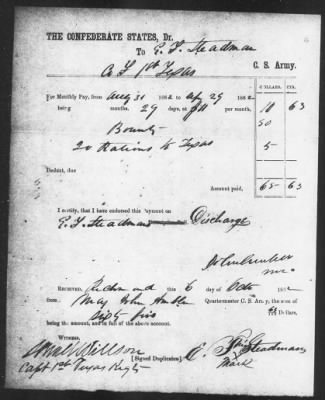 THE CONFEDERATE STATES, Dr.
To E. T. Steadman
Co L 1st Texas C. S. Army.
DOLLARS. CTS.
For Monthly Pay, from Aug 31 1862 to Sep 29 1862
being months, 29 days, at $11 per month, 10 63
Bounty 50
20 Rations to Texas 5
Deduct, due
Amount paid, 65 63
I certify, that I have endorsed this payment on
E. T. Steadman Discharge
RECEIVED, Richmond this 6 day of Oct 1862
from Maj John Quartermaster C. S. A., the sum of
Sixty five Dollars,
being the amount, and in full of the above account.
WITNESS,
[Signed Duplicates.] E. his Steadman
mark
Capt 1st Texas Regt